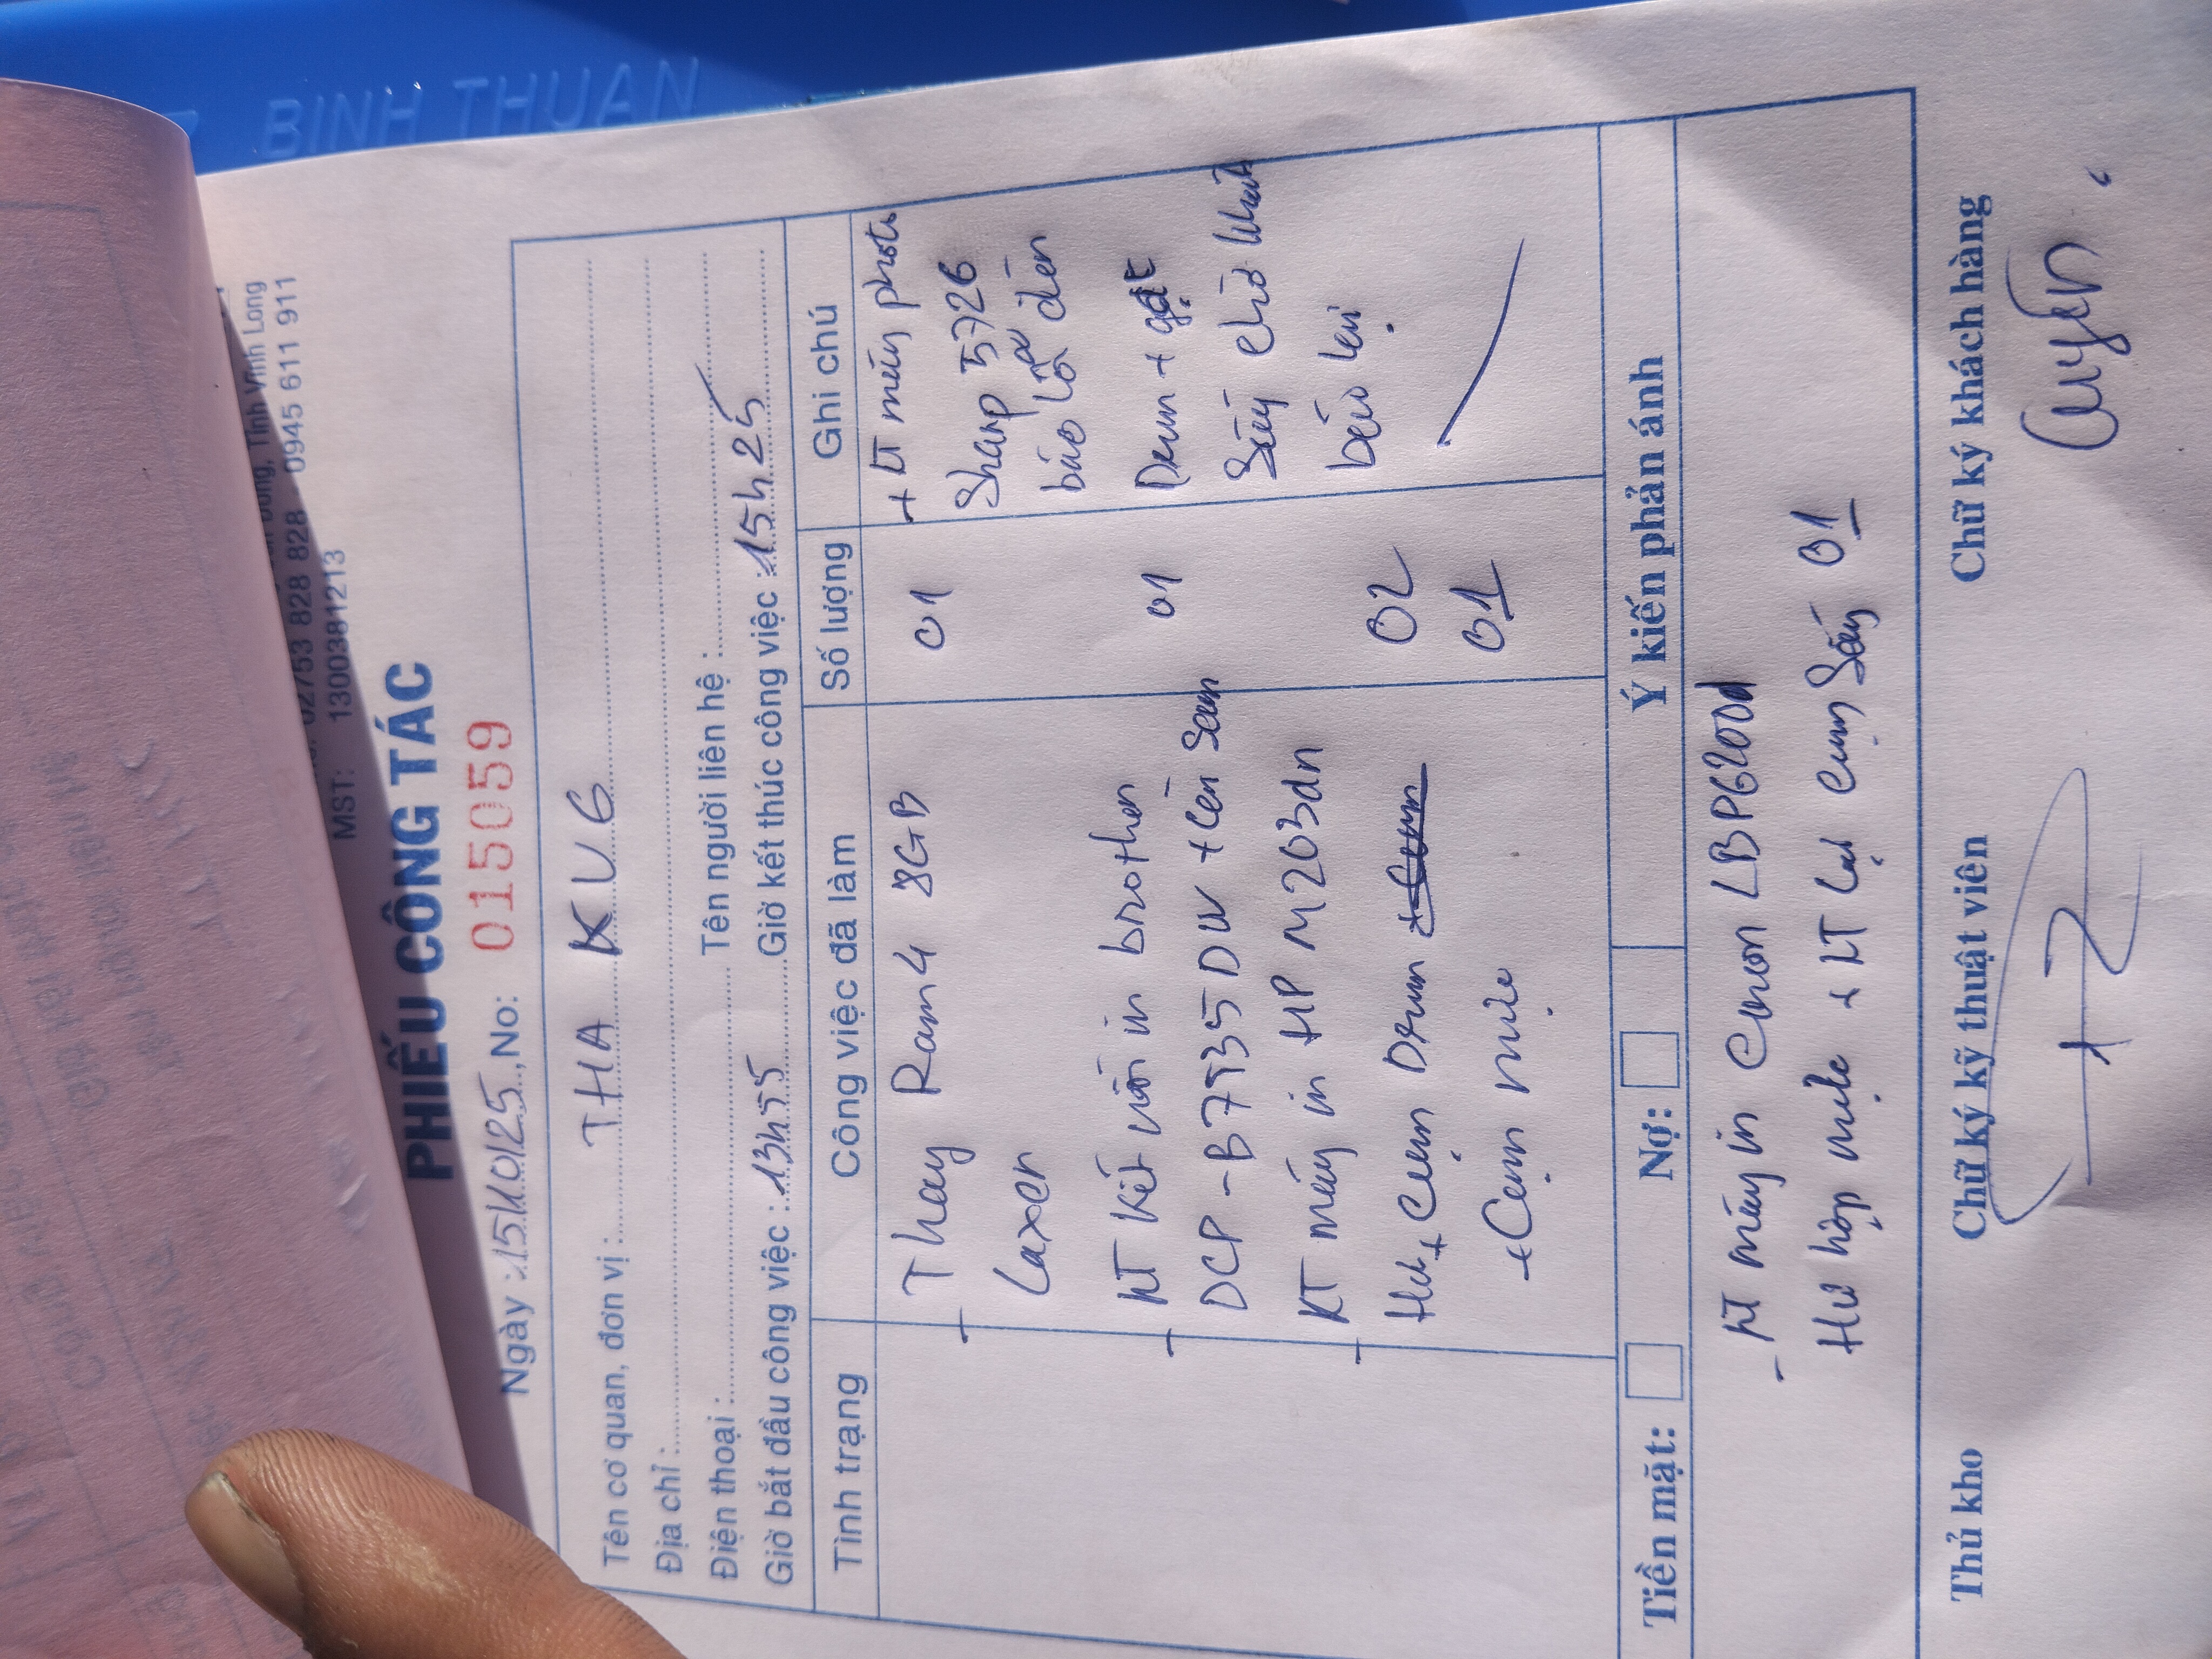 BINH THUAN
Tỉnh Vĩnh Long
02753 828 828 - 0945 611 911
MST: 1300381213
PHIẾU CÔNG TÁC
Ngày : 15/10/25, No: 015059
Tên cơ quan, đơn vị : THA KV6
Địa chỉ :
Điện thoại : Tên người liên hệ :
Giờ bắt đầu công việc : 13h55 Giờ kết thúc công việc : 15h25
Tình trạng Công việc đã làm Số lượng Ghi chú
- Thay Ram 4 8GB 01 + KT máy photo
Laxer Sharp 5726
báo lỗi đèn
- KT kết nối in brother 01 Drum + gạt
DCP-B7535DW + Cài Scan Sấy chờ
- KT máy in HP M203dn báo lại
Hư + Cụm Drum 02
+ Cụm mực 01
Tiền mặt: Nợ: Ý kiến phản ánh
- KT máy in Canon LBP6200d
Hư hộp mực + KT lại Cụm Sấy 01
Thủ kho Chữ ký kỹ thuật viên Chữ ký khách hàng